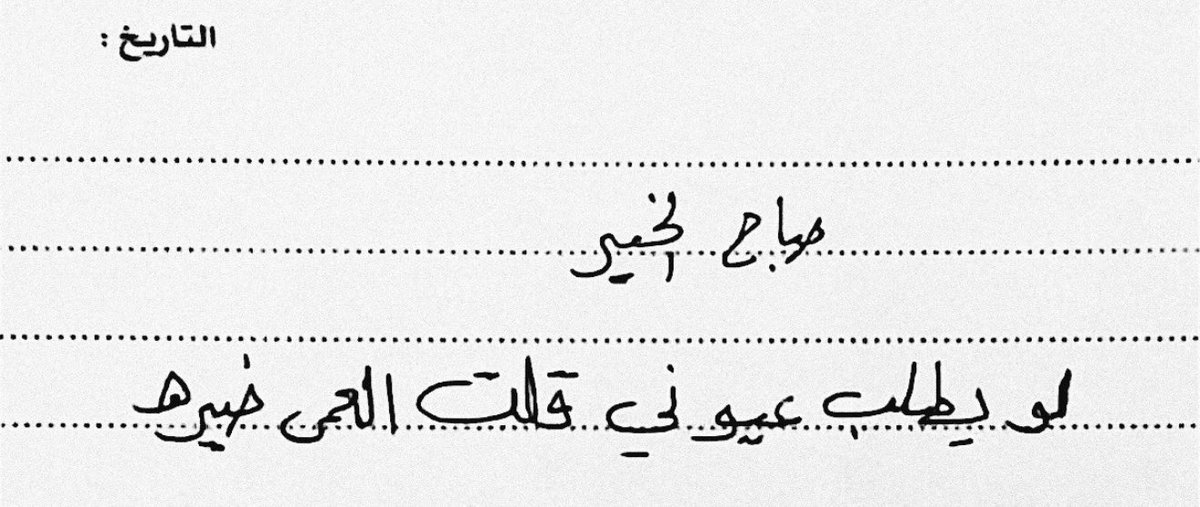 التاريخ :
صباح الخير
لو يطلب عيوني قلت العمى خيره